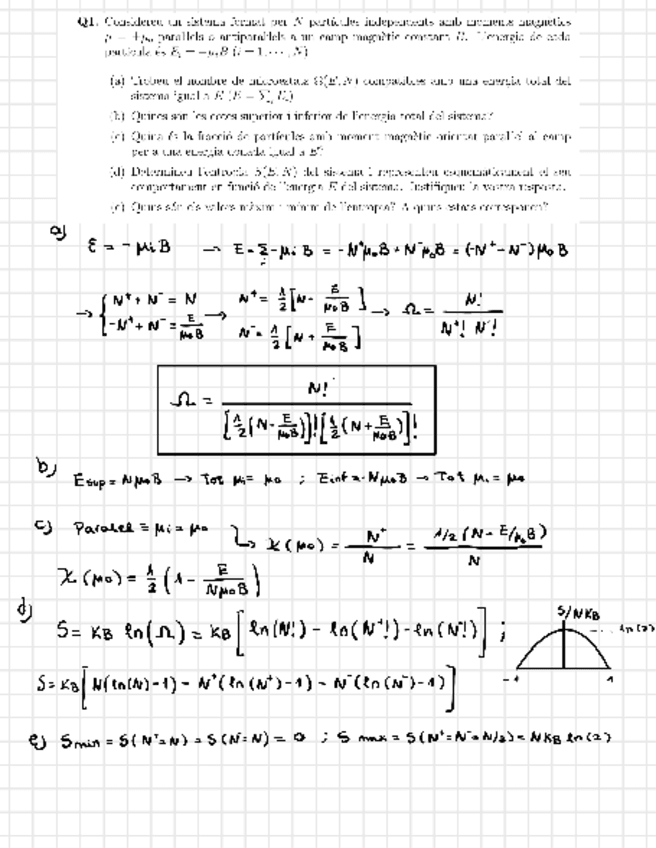 Q1. Considereu un sistema format per N partícules independents amb moments magnètics
μ = ±μ₀ paral·lels o antiparal·lels a un camp magnètic constant B. L'energia de cada
partícula és Eᵢ = −μᵢB (i = 1, ⋯, N)
(a) Trobeu el nombre de microestats Ω(E, N) compatibles amb una energia total del
sistema igual a E (E = Σᵢ Eᵢ)
(b) Quines són les cotes superior i inferior de l'energia total del sistema?
(c) Quina és la fracció de partícules amb moment magnètic orientat paral·lel al camp
per a una energia donada igual a E?
(d) Determineu l'entropia S(E, N) del sistema i representeu esquemàticament el seu
comportament en funció de l'energia E del sistema. Justifiqueu la vostra resposta.
(e) Quins són els valors màxim i mínim de l'entropia? A quins estats corresponen?
a) ε = −μᵢB → E = Σᵢ −μᵢB = −N⁺μ₀B + N⁻μ₀B = (−N⁺ + N⁻) μ₀B
→ { N⁺ + N⁻ = N ; −N⁺ + N⁻ = E/μ₀B → N⁺ = 1/2 [N − E/μ₀B] ; N⁻ = 1/2 [N + E/μ₀B] → Ω = N!/(N⁺! N⁻!)
Ω = N! / ([1/2 (N − E/μ₀B)]! [1/2 (N + E/μ₀B)]!)
b) Esup = Nμ₀B → Tot μᵢ = μ₀ ; Einf = −Nμ₀B → Tot μᵢ = μ₀
c) Paralel ≡ μᵢ = μ₀ ↳ χ(μ₀) = N⁺/N = 1/2 (N − E/μ₀B) / N
χ(μ₀) = 1/2 (1 − E/Nμ₀B)
d) S = KB ln(Ω) = KB [ln(N!) − ln(N⁺!) − ln(N⁻!)] ;
S/NKB
ln(2)
−1 1
S = KB [N(ln(N)−1) − N⁺(ln(N⁺)−1) − N⁻(ln(N⁻)−1)]
e) Smin = S(N⁺=N) = S(N⁻=N) = 0 ; S max = S(N⁺=N⁻=N/2) = NKB ln(2)